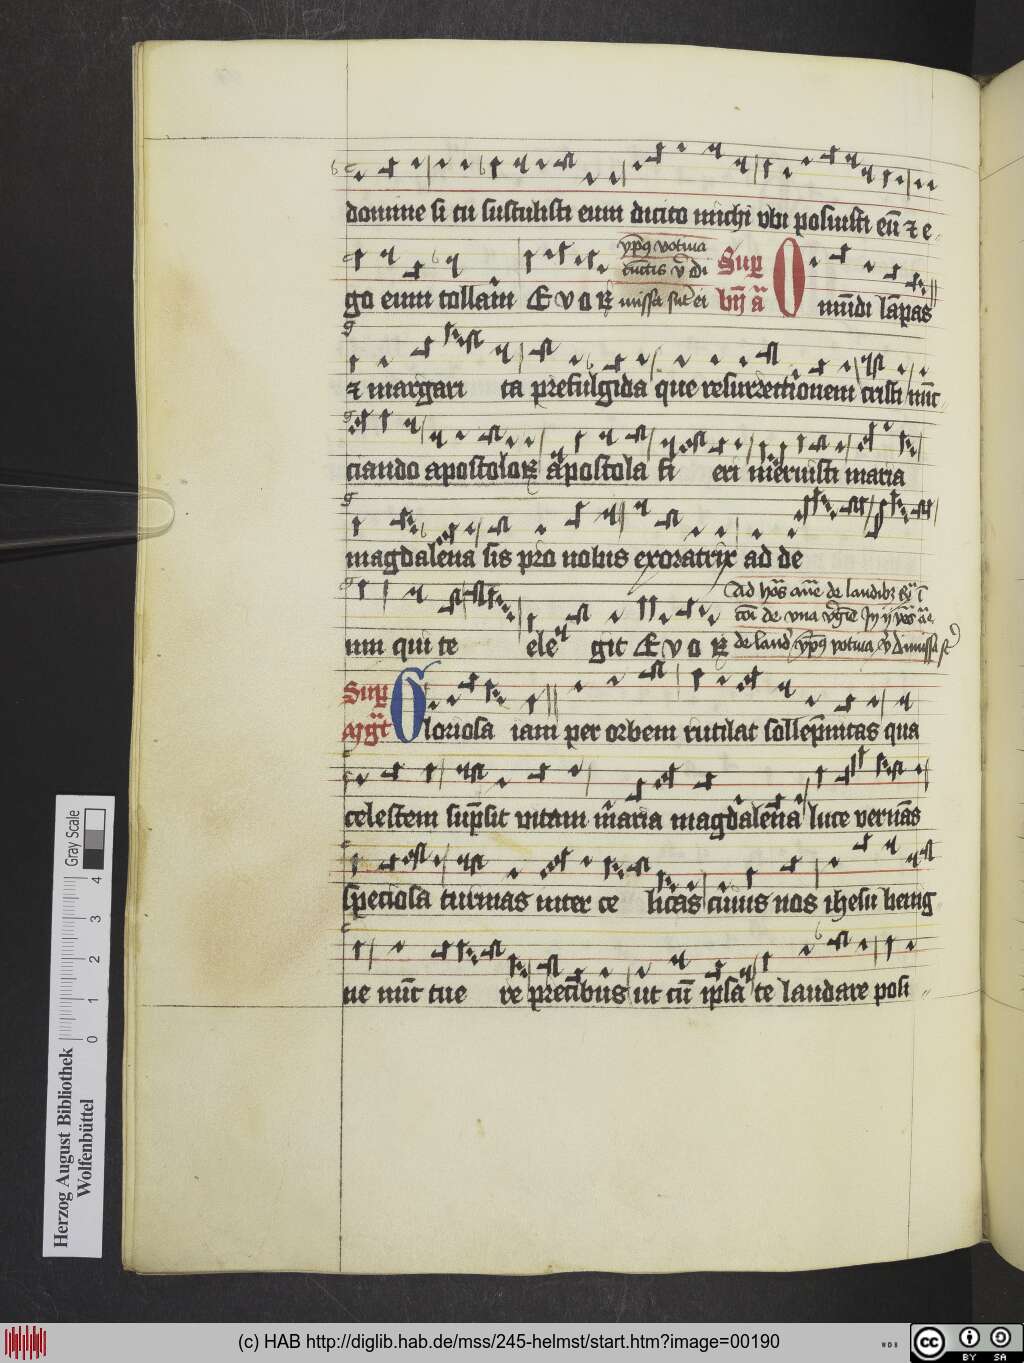 domine si tu sustulisti eum dicito michi vbi posuisti eu̅ ⁊ e
go eum tolla̅m E v o R
yp̅s votiua
cu̅ctis v̅ di
missa su̅t ei
Sup
bn̅ a̅
O mu̅di la̅pas
⁊ margari ta prefulgida que resurrectionem cristi nu̅c
ciando apostoloꝝ apostola fi eri meruisti maria
magdalena sis pro nobis exoratrix ad de
um qui te ele git E v o R
de vna
votiua
Sup
mgͭ
Gloriosa iam per orbem rutilat sollep̅nitas qua
celestem su̅psit vitam maria magdalena luce verna̅s
speciosa turmas inter ce licas cuius nos ihesu benig
ne nu̅c tue re precibus ut cu̅ ipsa te laudare posi
Gray Scale
0 1 2 3 4
Herzog August Bibliothek
Wolfenbüttel
(c) HAB http://diglib.hab.de/mss/245-helmst/start.htm?image=00190
WDB
cc BY SA